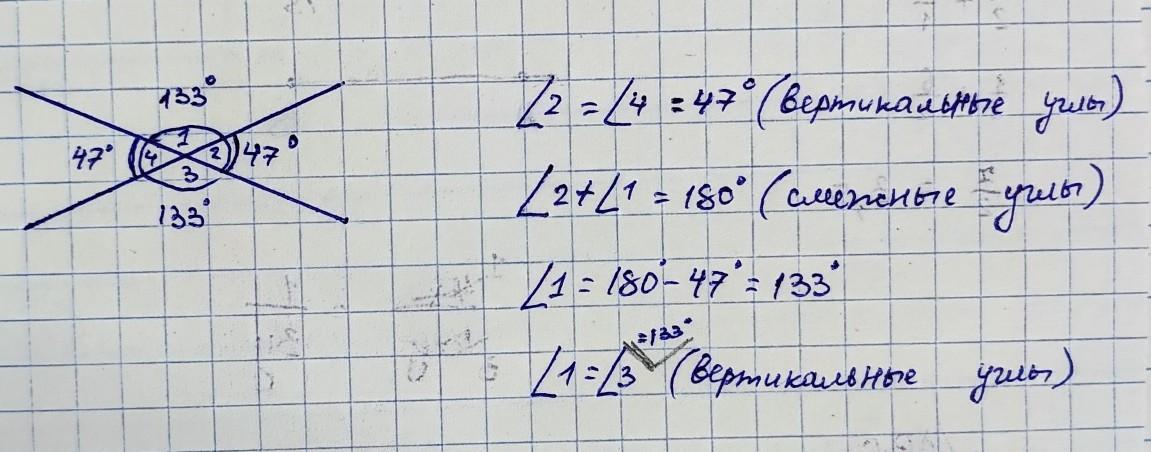 133°
1
47° 4 2 47°
3
133°
∠2 = ∠4 = 47° (вертикальные углы)
∠2 + ∠1 = 180° (смежные углы)
∠1 = 180° - 47° = 133°
=133°
∠1 = ∠3 (вертикальные углы)